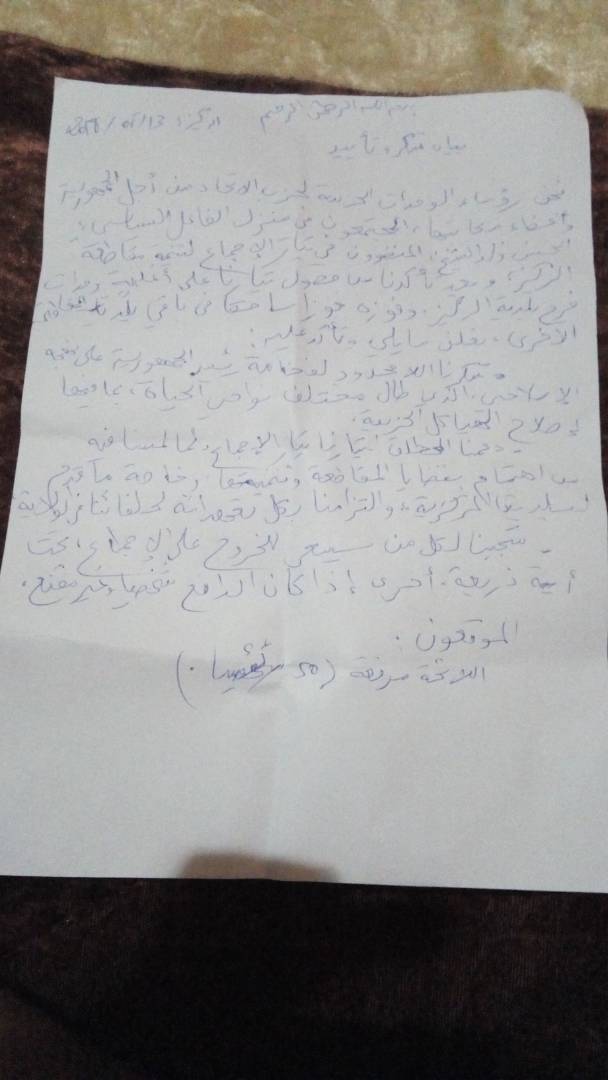 بسم الله الرحمن الرحيم
اركيز: 13/05/
بيان شكر وتأييد
نحن رؤساء الوحدات الحزبية لحزب الاتحاد من أجل الجمهورية
وأعضاء مكاتبها، المجتمعون في منزل الفاعل السياسي:
الحسن المنضوون في تيار الإجماع لتنمية مقاطعة
اركيز، وبعد تأكدنا من حصول تيارنا على أغلبية وحدات
فرع بلدية اركيز، وفوزه فوزا ساحقا في باقي بلديات المقاطعة
الأخرى، نعلن ما يلي ونأكد عليه:
- شكرنا اللامحدود لفخامة رئيس الجمهورية على نهجه
الإصلاحي، الذي طال مختلف نواحي الحياة، بما فيها
إصلاح الهياكل الحزبية.
- دعمنا المطلق لتيارنا تيار الإجماع، لما لمسنا فيه
من اهتمام بقضايا المقاطعة وتنميتها، وخاصة ما قدم
لبلديتنا المركزية، والتزامنا بكل تعهداته لحلفائنا في الولاية
- شجبنا لكل من سيسعى للخروج على الإجماع، تحت
أية ذريعة، أحرى إذا كان الدافع شخصيا وغير مقنع.
الموقعون:
اللائحة مرفقة (50